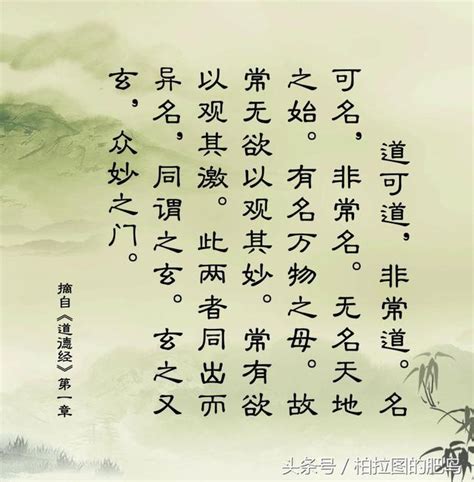 道可道，非常道。名
可名，非常名。无名天地
之始。有名万物之母。故
常无欲以观其妙。常有欲
以观其激。此两者同出而
异名，同谓之玄。玄之又
玄，众妙之门。
摘自《道德经》第一章
头条号／柏拉图的肥鸟